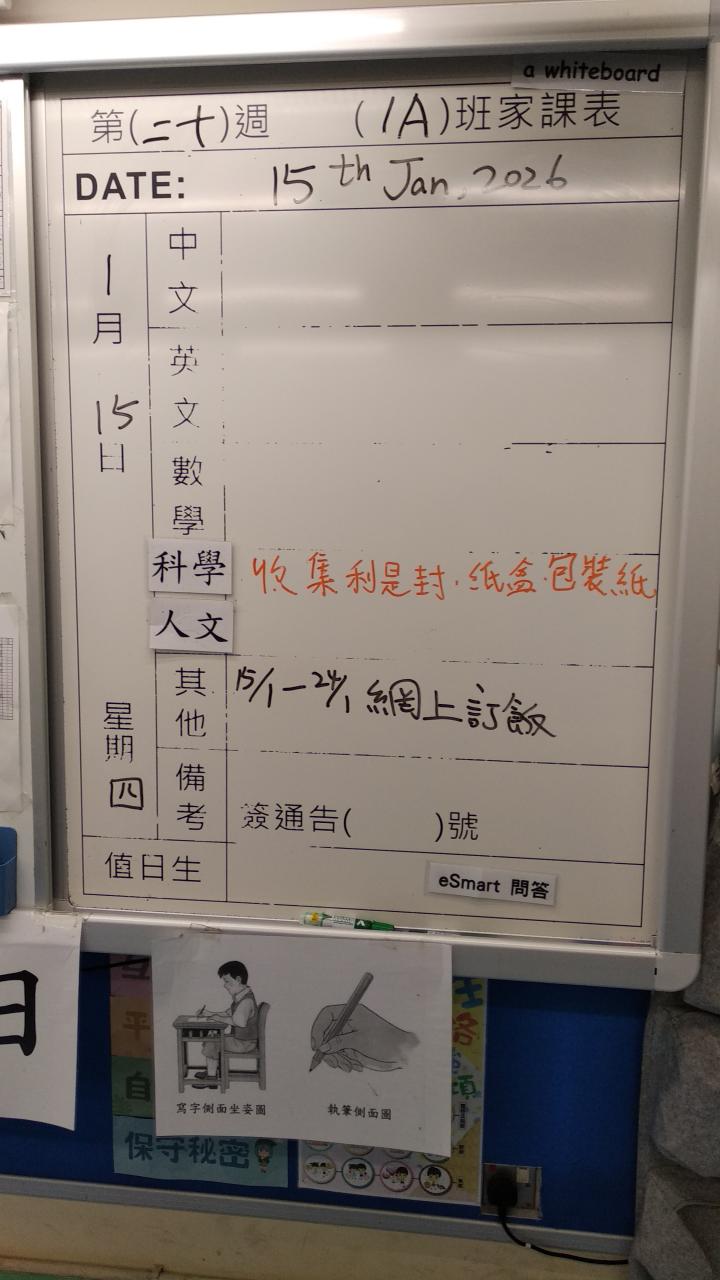 a whiteboard
第(二十)週 (1A)班家課表
DATE: 15th Jan, 2026
1月15日 星期四
中文
英文
數學
科學 收集利是封、纸盒、包裝紙
人文
其他 15/1—24/1 網上訂飯
備考 簽通告( )號
值日生
eSmart 問答
寫字側面坐姿圖 執筆側面圖
日
保守秘密